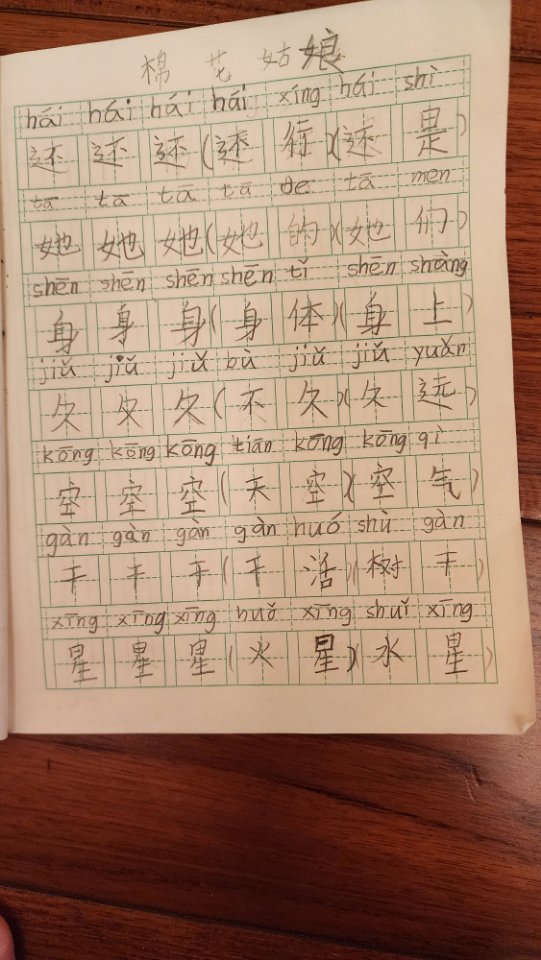 棉花姑娘
hái hái hái hái xíng hái shì
还 还 还(还 行)(还 是)
tā tā tā tā de tā men
她 她 她(她 的)(她 们)
shēn shēn shēn shēn tǐ shēn shàng
身 身 身(身 体)(身 上)
jiǔ jiǔ jiǔ bù jiǔ jiǔ yuǎn
久 久 久(不 久)(久 远)
kōng kōng kōng tiān kōng kōng qì
空 空 空(天 空)(空 气)
gàn gàn gàn gàn huó shù gàn
干 干 干(干 活)(树 干)
xīng xīng xīng huǒ xīng shuǐ xīng
星 星 星(火 星)(水 星)